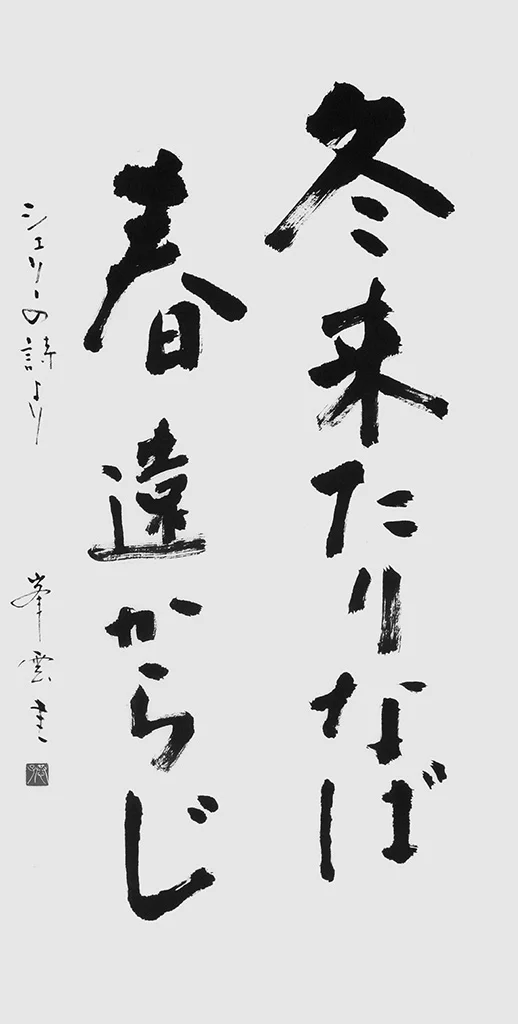 冬来たりなば
春遠からじ
シェリーの詩より
峯雲書